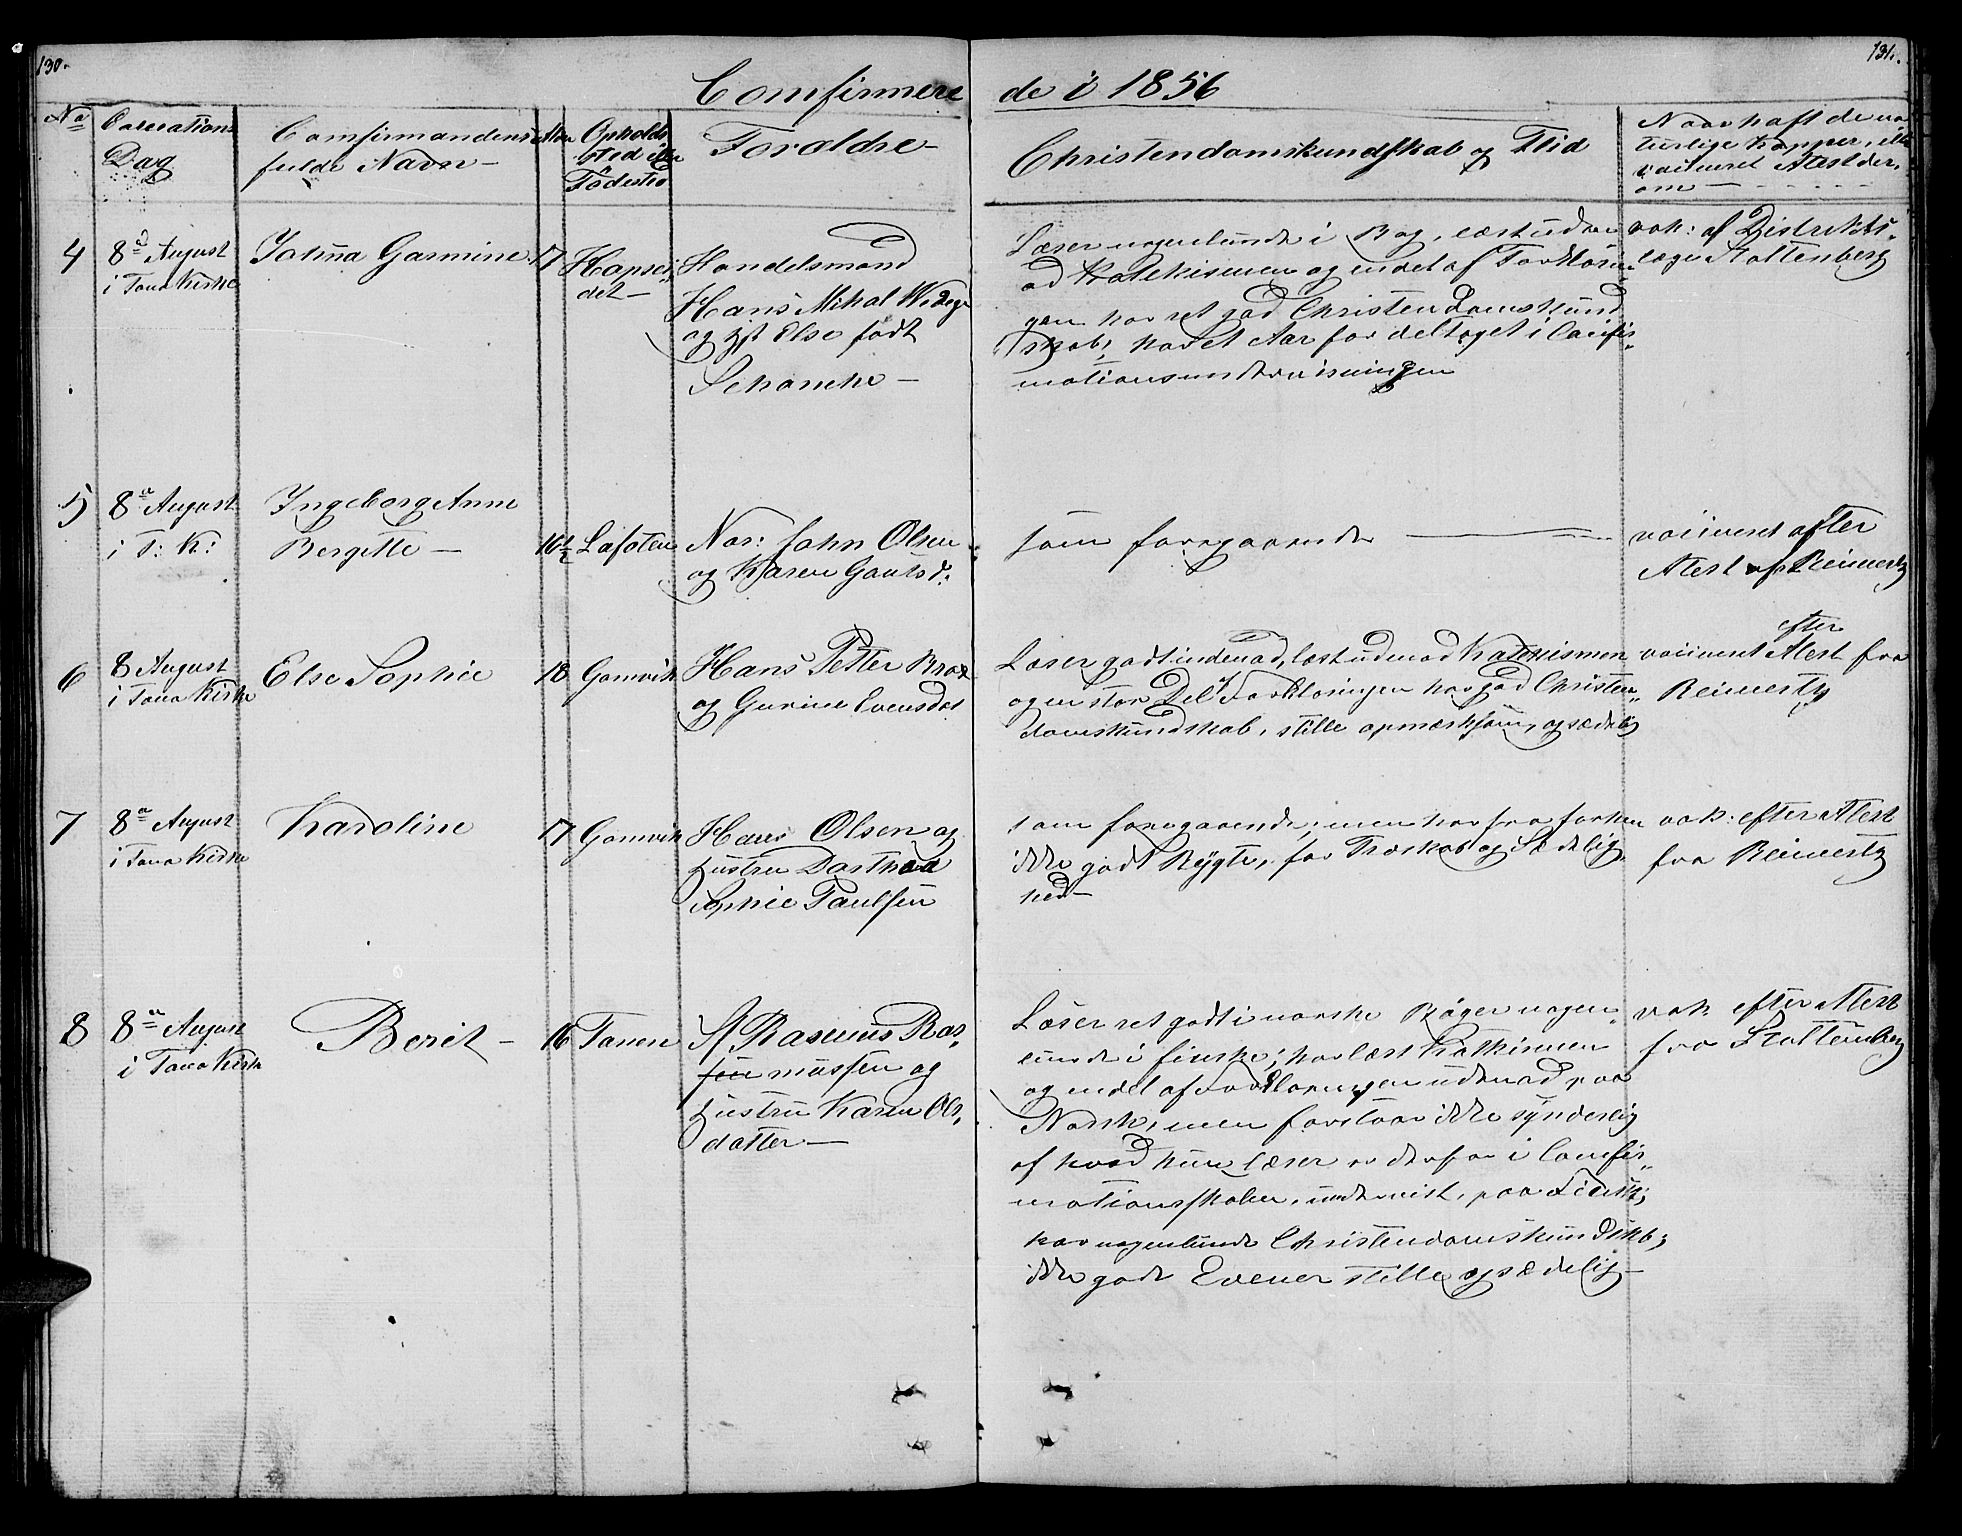 130.
131.
Comfirmere
de i 1856
No
Dag
Comfirmandens
fulde Navn -
Alder
Opholds
sted eller
Födested
Forældre -
Christendomskundskab og Flid
Naar haft de na
turlige Kopper, eller
vacineret Atest der,
om
4
8de August
i Tana Kirke
17
Hopsei,,
det -
Handelsmand
Hans Mikal
og Hst Else født
Schanche -
Læser nogenlunde i Bog, læst uden
ad Katekismen og endel af Forklarin
gen har ret god Christendomskund
skab, har et Aar før deltaget i Confir,,
mationsundervisningen
vak: af Distrikts,,
læge Stoltenberg
5
8de August
i T: K:
Ingeborg Anne
Bergitte -
16½
Lafoten
Nor: John Olsen
og Karen
som foregaaende
vaiineret efter
Atest af Reinertz
6
8 August
i Tana Kirke
Else Sophie
18
Gamvik
Hans Petter
og Gurine Evensdat
Læser godt indenad, læst udenad Katekismen
og en stor Del af Forklaringen har god Christen,,
domskundskab, stille opmærksom, og sædelig
efter
vaiineret Atest fra
Reinertz
7
8de August
i Tana Kirke
Karoline
17
Gamvik
Hans Olsen og
Hustru Dorthea
Sophie Paulsen
som foregaaende; men har fra forhen
ikke godt Rygte, for Troskab og Sædelig,
hed -
vak: efter Atest
fra Reinertz
8
8de August
i Tana Kirke
Berit -
16
Tanen
Rasmus Ras,,
sen mussen og
Hustru Karen Ols,
datter -
Læser ret godt i norske Bøger nogen,,
lunde i finske; har læst Katkismen
og endel af Forklaringen udenad paa
Norsk, men forstaar ikke synderlig
af hvad hun læser er derfor i Confir,,
mationsskolen, undervist, paa Finsk;
har nogenlunde Christendomskundskb;
ikke gode Evener stille og sædelig -
vak efter Atest
fra Stoltenberg